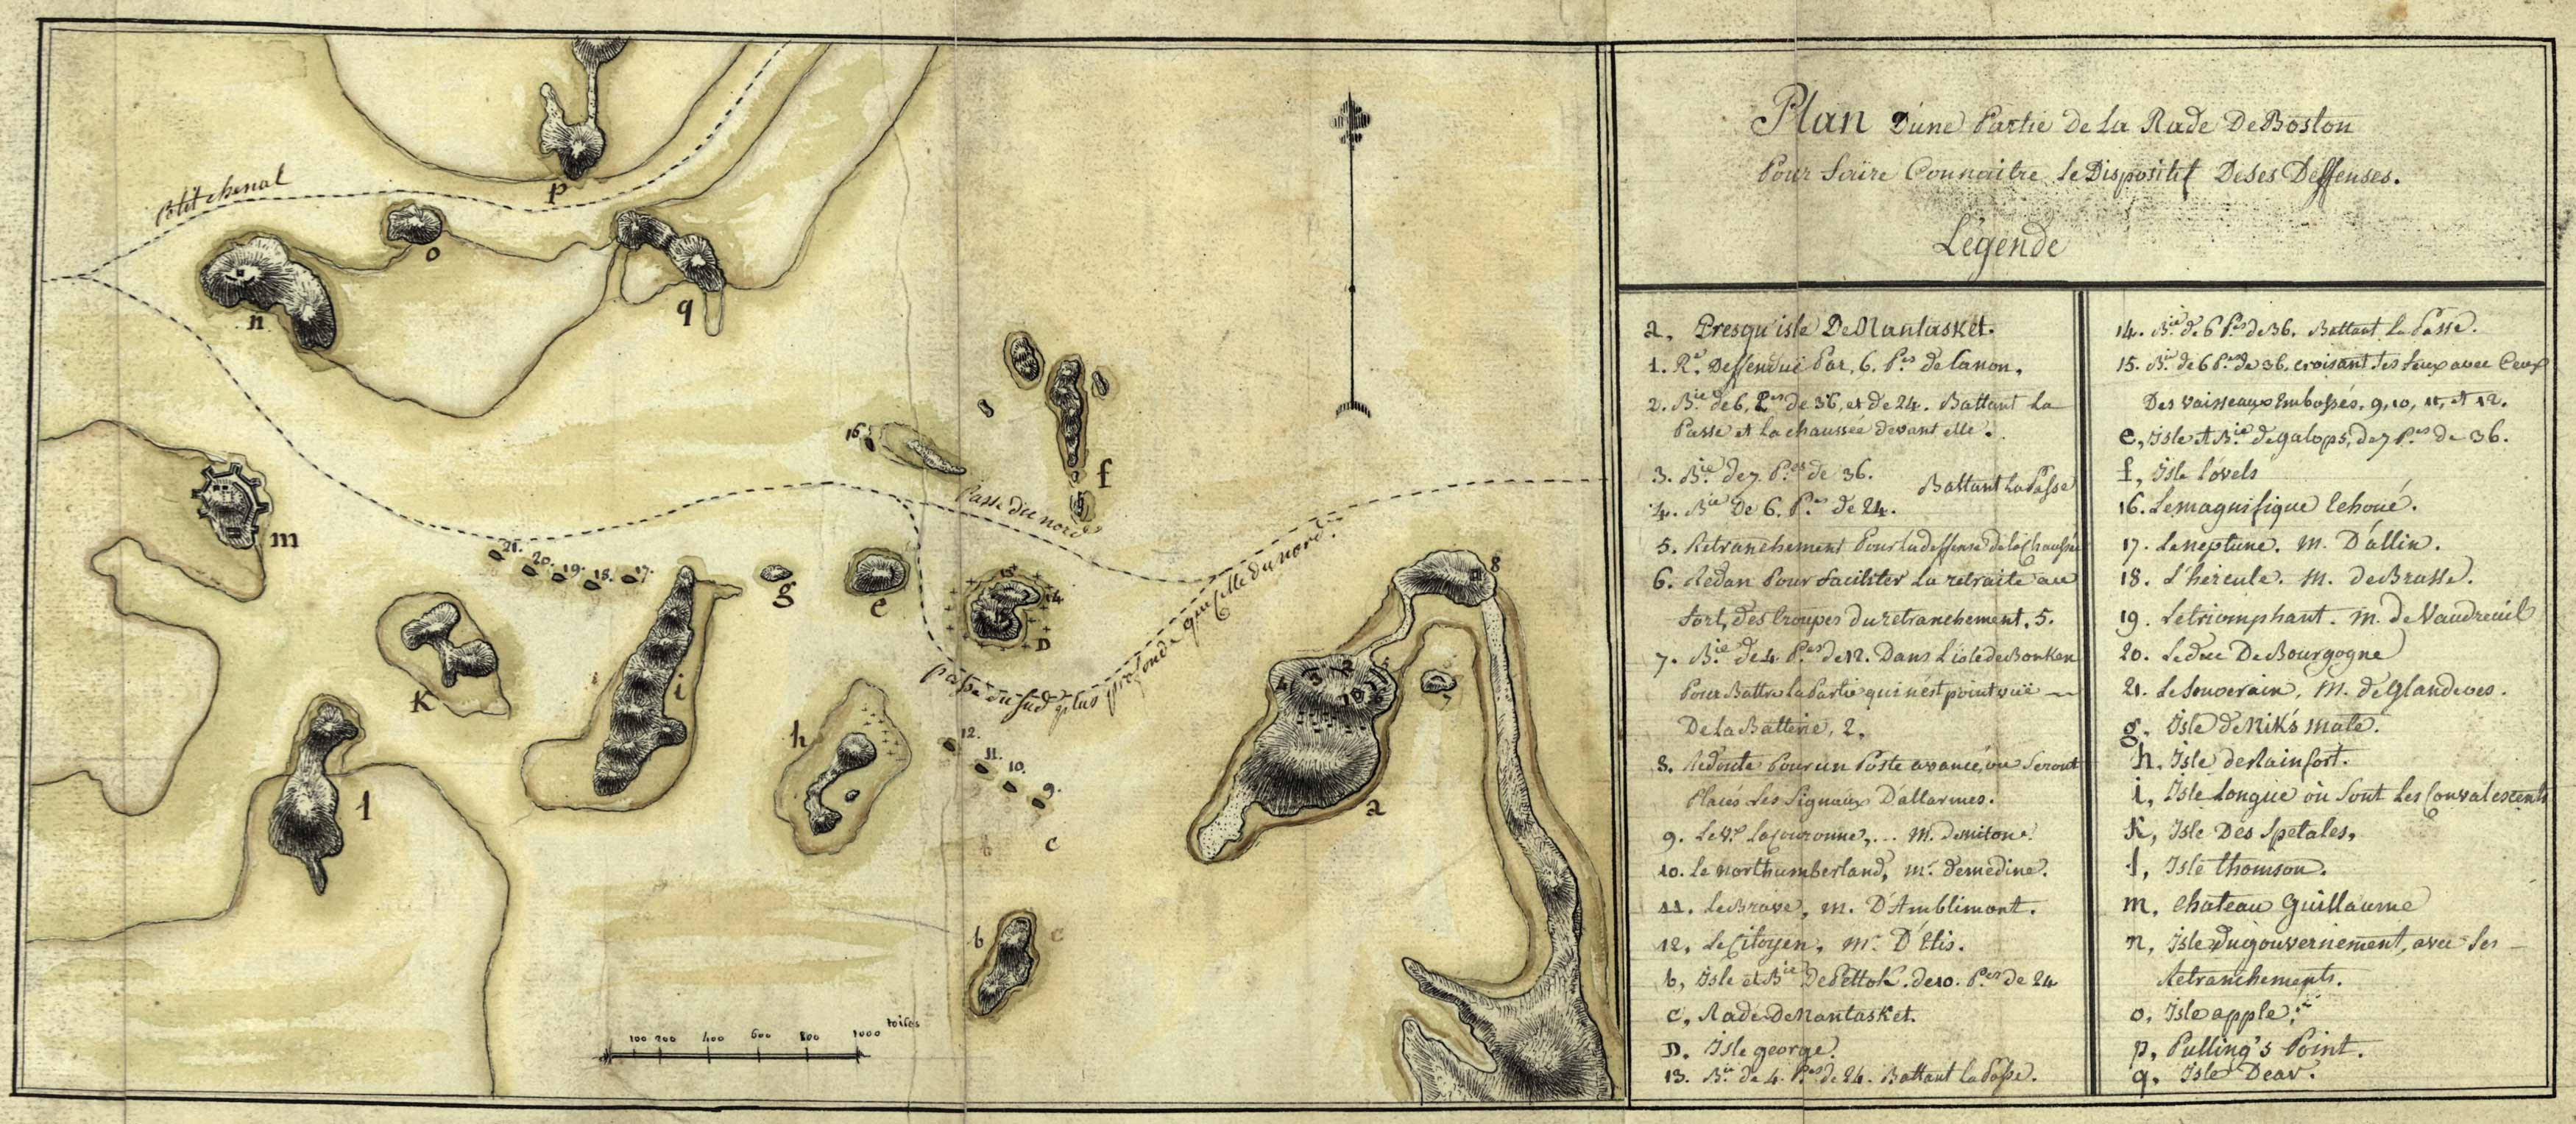 Plan D'une Partie de La Rade De Boston
Pour faire Connaitre le Dispositif De ses Deffenses.
Légende
a, Presqu'isle De Nantasket.
1. R.te Deffendue Par, 6. P.es de Canon.
2. B.ie de 6, P.es de 36, et de 24. Battant la
Passe et la chaussée devant elle.
3. B.ie de 7. P.es de 36.
Battant la Passe
4. B.ie De 6. P.es de 24.
5. Retranchement Pour la deffense de la Chaussée
6. Redan Pour faciliter la retraite au
fort, des troupes du retranchement, 5.
7. B.ie de 4 P.es de 12. Dans l'isle de Bonken
Pour Battre la Partie qui n'est point vuë
De la Batterie, 2.
8. Redoute Pour un Poste avancé, où Seront
Placés les Signaux D'allarmes.
9. Le V.au la Couronne, ... M. de mitone
10. Le northumberland, M.r demedine.
11. Le Brave, m. D'Amblimont.
12, Le Citoyen, M.r D'Etis.
b, Isle et B.ie De Pettok. de 10. P.es de 24
C, Rade De Nantasket.
D. Isle george.
13. B.ie de 4. P.es de 24. Battant la Passe.
14. B.ie de 6 P.es de 36. Battant la Passe.
15. B.ie de 6 P.es de 36. croisant ses feux avec Ceux
Des vaisseaux Embossés. 9, 10, 11, et 12.
e, Isle et B.ie de galops, de 7 P.es de 36.
f, Isle lovels
16. Le magnifique Echoué.
17. Le neptune. m. D'allin.
18. L'hercule. m. de Brasse.
19. Le triomphant. m. de Vaudreüil
20. Le duc De Bourgogne
21. Le Souverain, M. de Glandeves.
g. Isle de Nik's mate.
h, Isle de Rainfort.
i, Isle Longue où Sont les Convalescents
K, Isle Des Spetales,
l, Isle thomson.
m, Chateau Guillaume
n, Isle du gouvernement, avec Ses
Retranchements.
o, Isle apple.
p, Pulling's Point.
q, Isle Dear.
Petit chenal
p
o
n
q
16
f
m
Passe du nord
21.
20.
19.
18.
17.
g
e
13
14
D
passe du sud plus profonde que celle du nord.
8
K
i
h
l
12.
11.
10.
9.
c
4
3
2
5
1
7
a
b
c
100 200 400 600 800 1000 toises